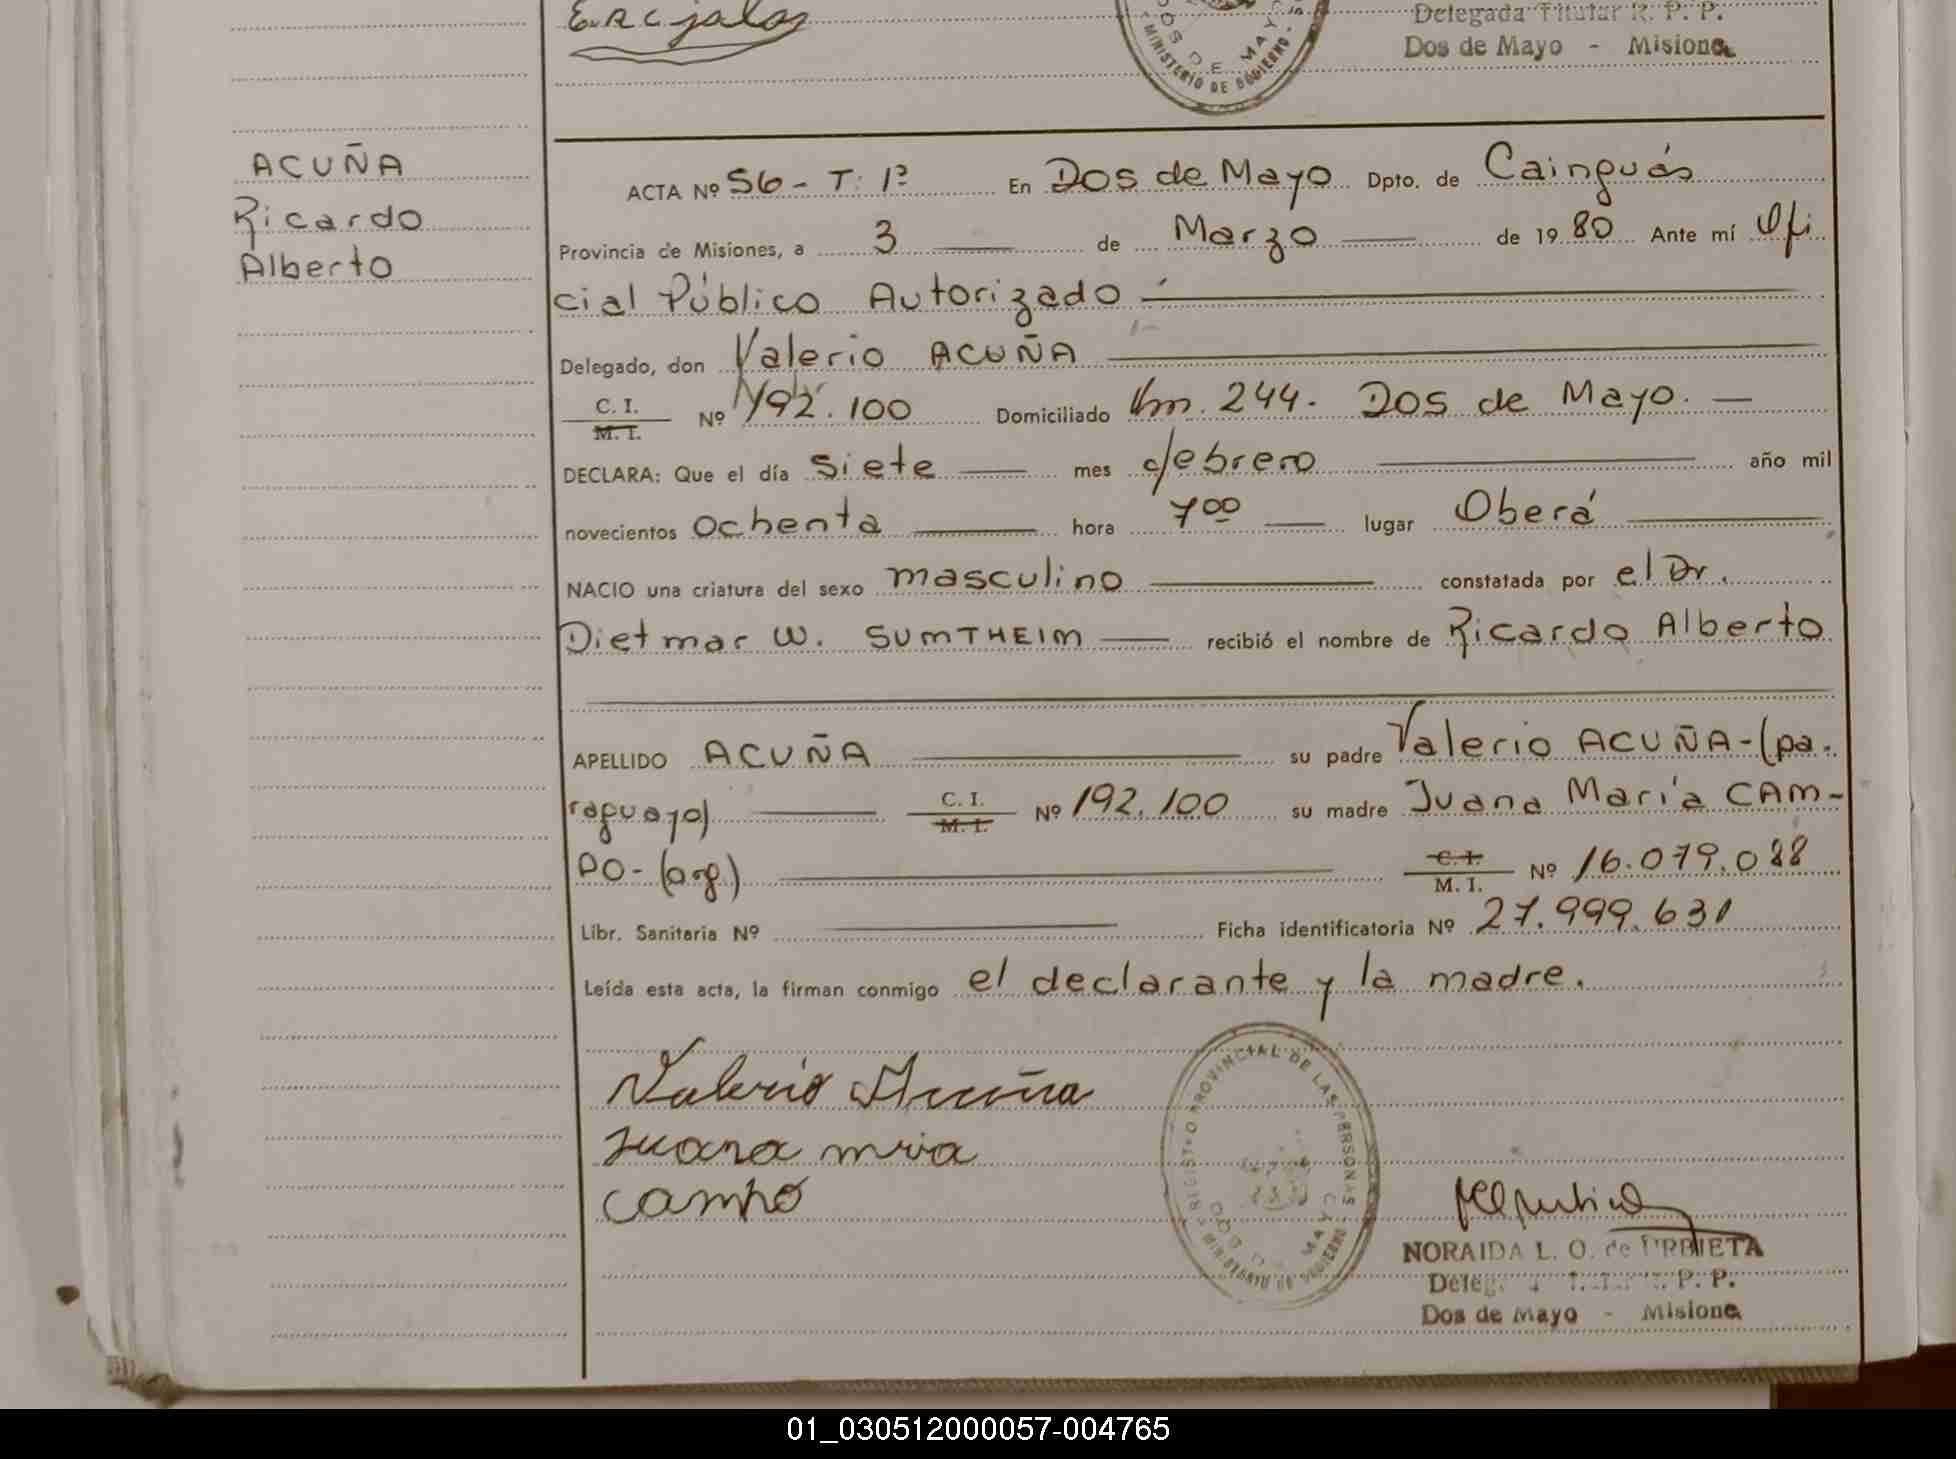 Delegada Titular R. P. P.
Dos de Mayo - Misiones
DOS DE MAYO
MINISTERIO DE GOBIERNO
ACUÑA
Ricardo
Alberto
ACTA Nº 56 - T: 1º En Dos de Mayo Dpto. de Cainguás
Provincia de Misiones, a 3 de Marzo de 1980 Ante mí Ofi
cial Público Autorizado
Delegado, don Valerio ACUÑA
C. I. M. I. Nº 192.100 Domiciliado Km. 244. Dos de Mayo.
DECLARA: Que el día siete mes febrero año mil
novecientos ochenta hora 7 00 lugar Oberá
NACIO una criatura del sexo masculino constatada por el Dr.
Dietmar W. SUMTHEIM recibió el nombre de Ricardo Alberto
APELLIDO ACUÑA su padre Valerio ACUÑA - (pa.
raguayo) C. I. M. I. Nº 192.100 su madre Juana María CAM-
PO - (arg.) C. I. M. I. Nº 16.079.088
Libr. Sanitaria Nº Ficha identificatoria Nº 27.999.631
Leída esta acta, la firman conmigo el declarante y la madre.
Valerio Acuña
Juana mria
campo
REGISTRO PROVINCIAL DE LAS PERSONAS
DOS DE MAYO
MINISTERIO DE GOBIERNO
NORAIDA L. O. de URBIETA
Delegada Titular R. P. P.
Dos de Mayo - Misiones
01_030512000057-004765